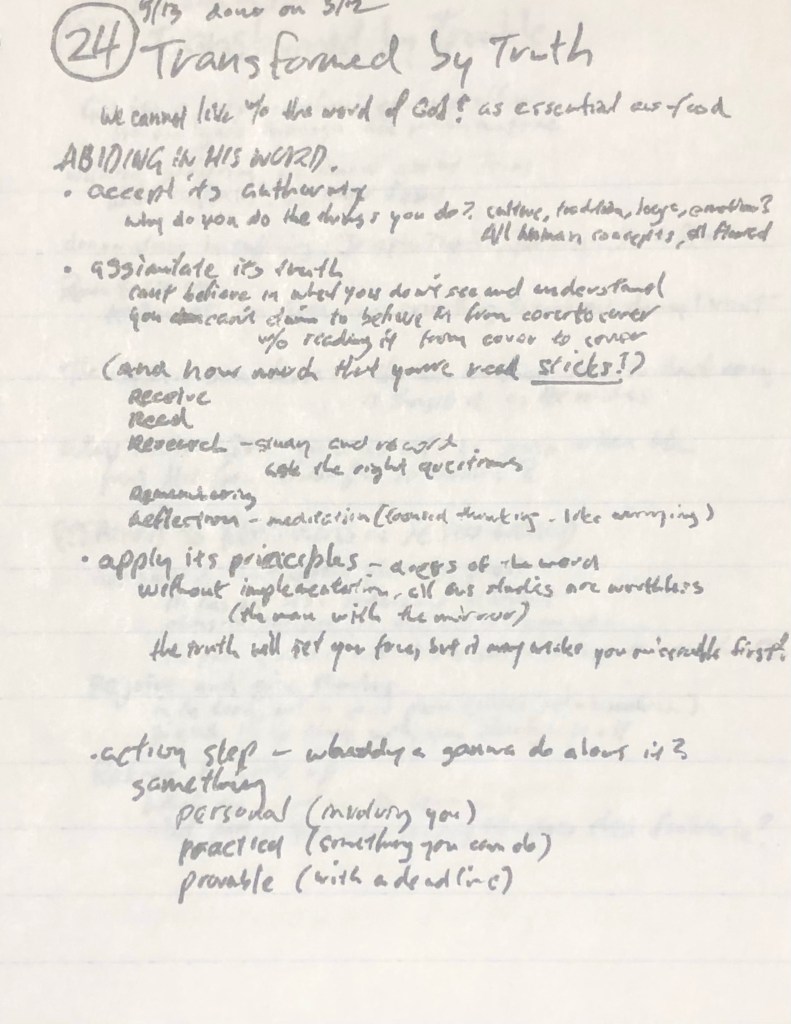 5/13 done on 5/12
24 Transformed by Truth
we cannot live w/o the word of God! as essential as food
ABIDING IN HIS WORD.
• accept its authority
why do you do the things you do? culture, tradition, logic, emotion?
All human concepts, all flawed
• assimilate its truth
can't believe in what you don't see and understand
you can't claim to believe it from cover to cover
w/o reading it from cover to cover
(and how much that you've read sticks!?)
Receive
Read
Research - study and record
ask the right questions
Remembering
Reflection - meditation (focused thinking - like worrying)
• apply its principles - doers of the word
without implementation, all our studies are worthless
(the man with the mirror)
the truth will set you free, but it may make you miserable first!
• action step - whaddya gonna do about it?
something
personal (involving you)
practical (something you can do)
provable (with a deadline)